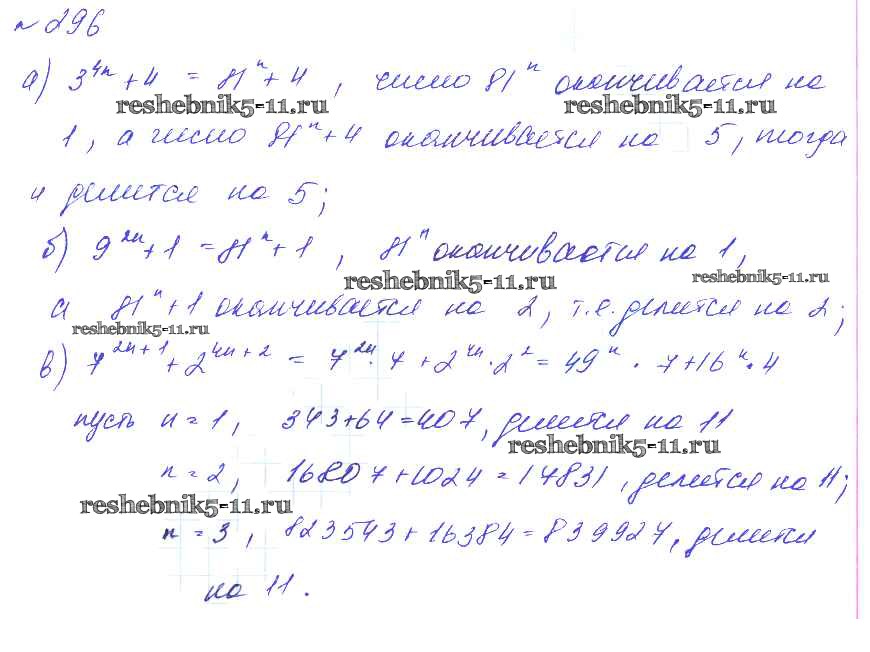 № 296
а) 3^4n + 4 = 81^n + 4 , число 81^n оканчивается на
reshebnik5-11.ru reshebnik5-11.ru
1 , а число 81^n + 4 оканчивается на 5 , тогда
и делится на 5 ;
б) 9^2n + 1 = 81^n + 1 , 81^n оканчивается на 1 ,
reshebnik5-11.ru reshebnik5-11.ru
а 81^n + 1 оканчивается на 2 , т.е. делится на 2 ;
reshebnik5-11.ru
в) 7^2n+1 + 2^4n+2 = 7^2n · 7 + 2^4n · 2^2 = 49^n · 7 + 16^n · 4
пусть n = 1 , 343 + 64 = 407 , делится на 11
reshebnik5-11.ru
n = 2 , 16807 + 1024 = 17831 , делится на 11 ;
reshebnik5-11.ru
n = 3 , 823543 + 16384 = 839927 , делится
на 11 .